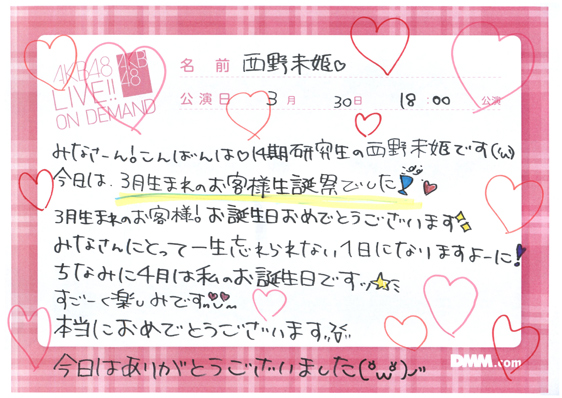 AKB48
LIVE!!
ON DEMAND
AKB
48
名 前 西野未姫♡
公演日 3月 30日 18:00 公演
みなさーん!こんばんは♡14期研究生の西野未姫です(ω)
今日は、3月生まれのお客様生誕祭でした
3月生まれのお客様!お誕生日おめでとうございます
みなさんにとって一生忘れられない1日になりますよーに!
ちなみに4月は私のお誕生日ですッ☆
すごーく楽しみです
本当におめでとうございます
今日はありがとうございました(˘ω˘)
DMM.com